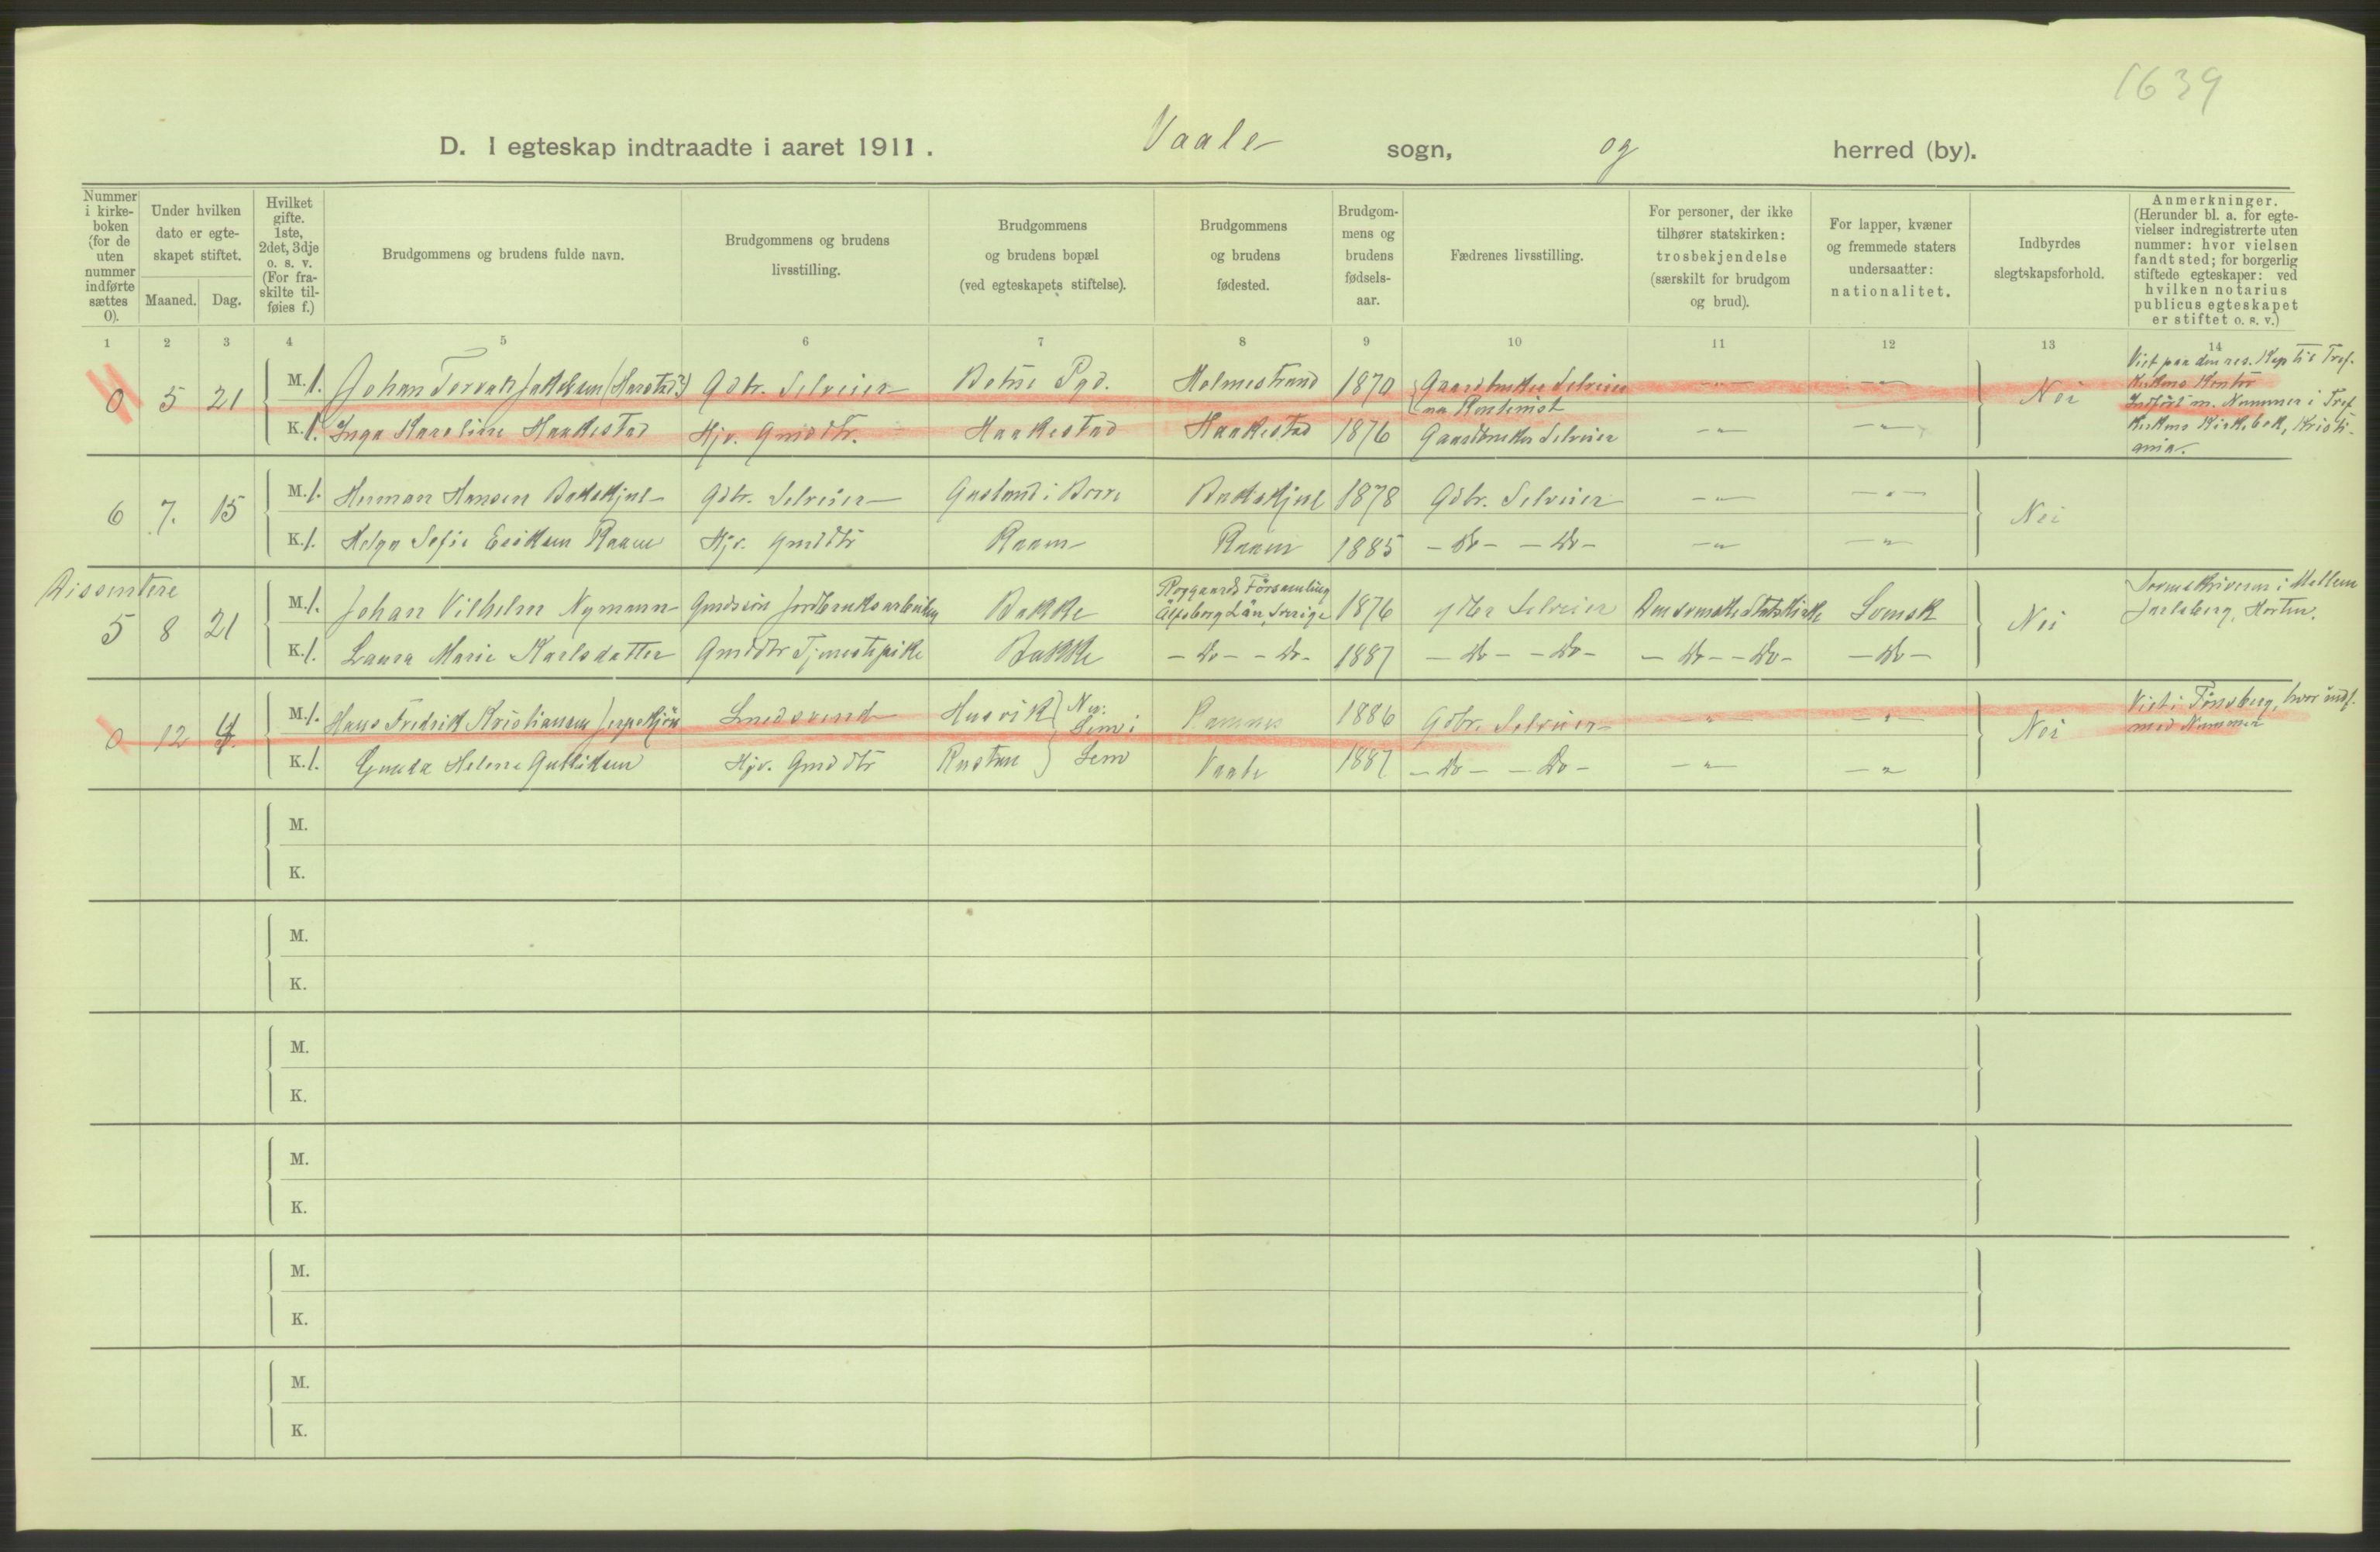 1639
D. I egteskap indtraadte i aaret 1911. Vaale sogn, og herred (by).
Nummer i kirkeboken (for de uten nummer indførte sættes 0).
Under hvilken dato er egteskapet stiftet.
Maaned. Dag.
Hvilket gifte. 1ste, 2det, 3dje o. s. v. (For fraskilte tilføies f.)
Brudgommens og brudens fulde navn.
Brudgommens og brudens livsstilling.
Brudgommens og brudens bopæl (ved egteskapets stiftelse).
Brudgommens og brudens fødested.
Brudgommens og brudens fødselsaar.
Fædrenes livsstilling.
For personer, der ikke tilhører statskirken: trosbekjendelse (særskilt for brudgom og brud).
For lapper, kvæner og fremmede staters undersaatter: nationalitet.
Indbyrdes slegtskapsforhold.
Anmerkninger. (Herunder bl. a. for egtevielser indregistrerte uten nummer: hvor vielsen fandt sted; for borgerlig stiftede egteskaper: ved hvilken notarius publicus egteskapet er stiftet o. s. v.)
1 2 3 4 5 6 7 8 9 10 11 12 13 14
0 5 21 M. 1. Johan Torvald Jakobsen (Harstad?) Gdbr. Selveier Botne Pgd. Holmestrand 1870 Gaardbruker Selveier -"- -"- Nei Viet paa den res. Kap til Tref.
nu Rentenist kirkens Kontor
Indført m. Nummer i Tref.
K. 1. Inga Karoline Haakestad Hjv. Gmddtr. Haakestad Haakestad 1876 Gaardbruker Selveier -"- -"- kirkens Kirkebok, Kristi-
ania.
6 7. 15 M. 1. Herman Hansen Bakskjul Gdbr. Selveier Gusland i Borre Bakskjul 1878 Gdbr. Selveier -"- -"- Nei
K. 1. Helga Sofie Eriksen Raaen Hjv. Gmddtr Raaen Raaen 1885 - do - - do - -"- -"-
Dissentere
5 8 21 M. 1. Johan Vilhelm Nymann Gmdsøn Jordbruksarbeider Bakke Församling Älfsborg Län, Sverige 1876 Selveier Den svenske Statskirke Svensk Nei Sorenskriveren i Mellem
Jarlsberg, Horten.
K. 1. Laura Marie Karlsdatter Gmddtr Tjenestepike Bakke - do - - do - 1887 - do - - do - - do - - do - - do -
0 12 4. M. 1. Hans Fredrik Kristiansen Smedsvend Husvik Nø: Sem i Ramnes 1886 Gdbr. Selveier -"- -"- Nei Viet i Tønsberg, hvor indf.
med Nummer
K. 1. Gunda Helene Gulliksen Hjv. Gmddtr Rustan Sem Vaale 1887 - do - - do - -"- -"-
M.
K.
M.
K.
M.
K.
M.
K.
M.
K.
M.
K.